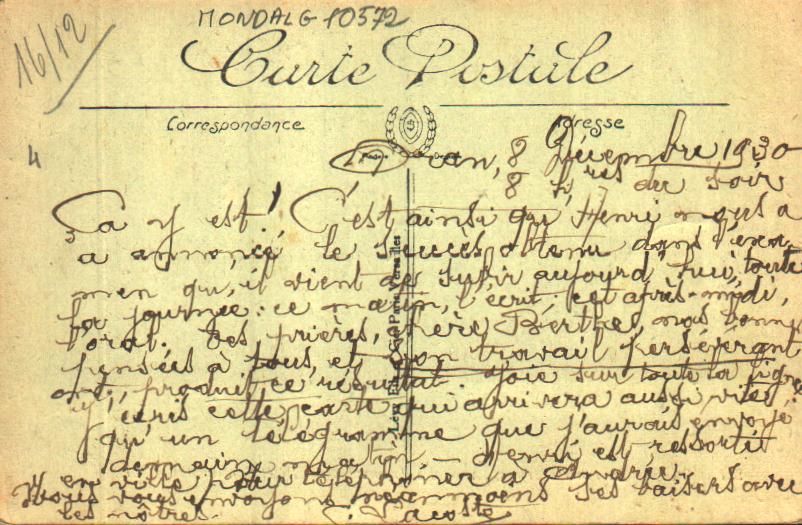 MONDALG 10572
16/12
Carte Postale
Correspondance
Adresse
4
Oran, 8 Décembre 1930
8 hres du soir
Ça y est! C'est ainsi que Henri nous a
a annoncé le succès obtenu dans l'exa-
men qu'il vient de subir aujourd'hui, toute
la journée: ce matin, l'écrit; cet après-midi,
l'oral. Tes prières, chère Berthe, nos bonnes
pensées à tous, et son travail persévérant
ont produit ce résultat. Joie sur toute la ligne
J'écris cette carte qui arrivera aussi vite
qu'un télégramme que j'aurais envoyé
demain matin — Henri est ressorti
en ville pour téléphoner à
Nous vous envoyons néanmoins ses baisers avec
les nôtres. Lacoste